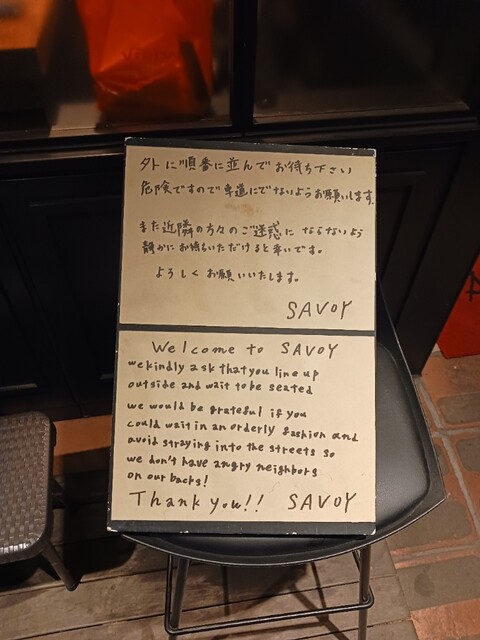 外に順番に並んでお待ち下さい
危険ですので車道にでないようお願いします。
また近隣の方々のご迷惑に ならないよう
静かにお待ちいただけると幸いです。
よろしく お願いいたします。
SAVOY
Welcome to SAVOY
we kindly ask that you line up
outside and wait to be seated
we would be grateful if you
could wait in an orderly fashion and
avoid straying into the streets so
we don't have angry neighbors
on our backs!
Thank you!! SAVOY